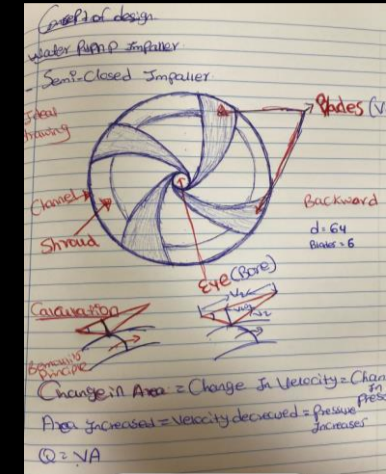 Concept of design
Water Pump Impaller
- Semi-Closed Impaller
Ideal
Drawing
Blades (V
Channel
Shroud
Backward
d = 64
Blades = 6
Eye (Bore)
Calculation
V2
Bernoulli's
principle
Change in Area = Change In Velocity = Chan
In
Pres
Area Increased = Velocity decreased = Pressure
Increases
Q = VA